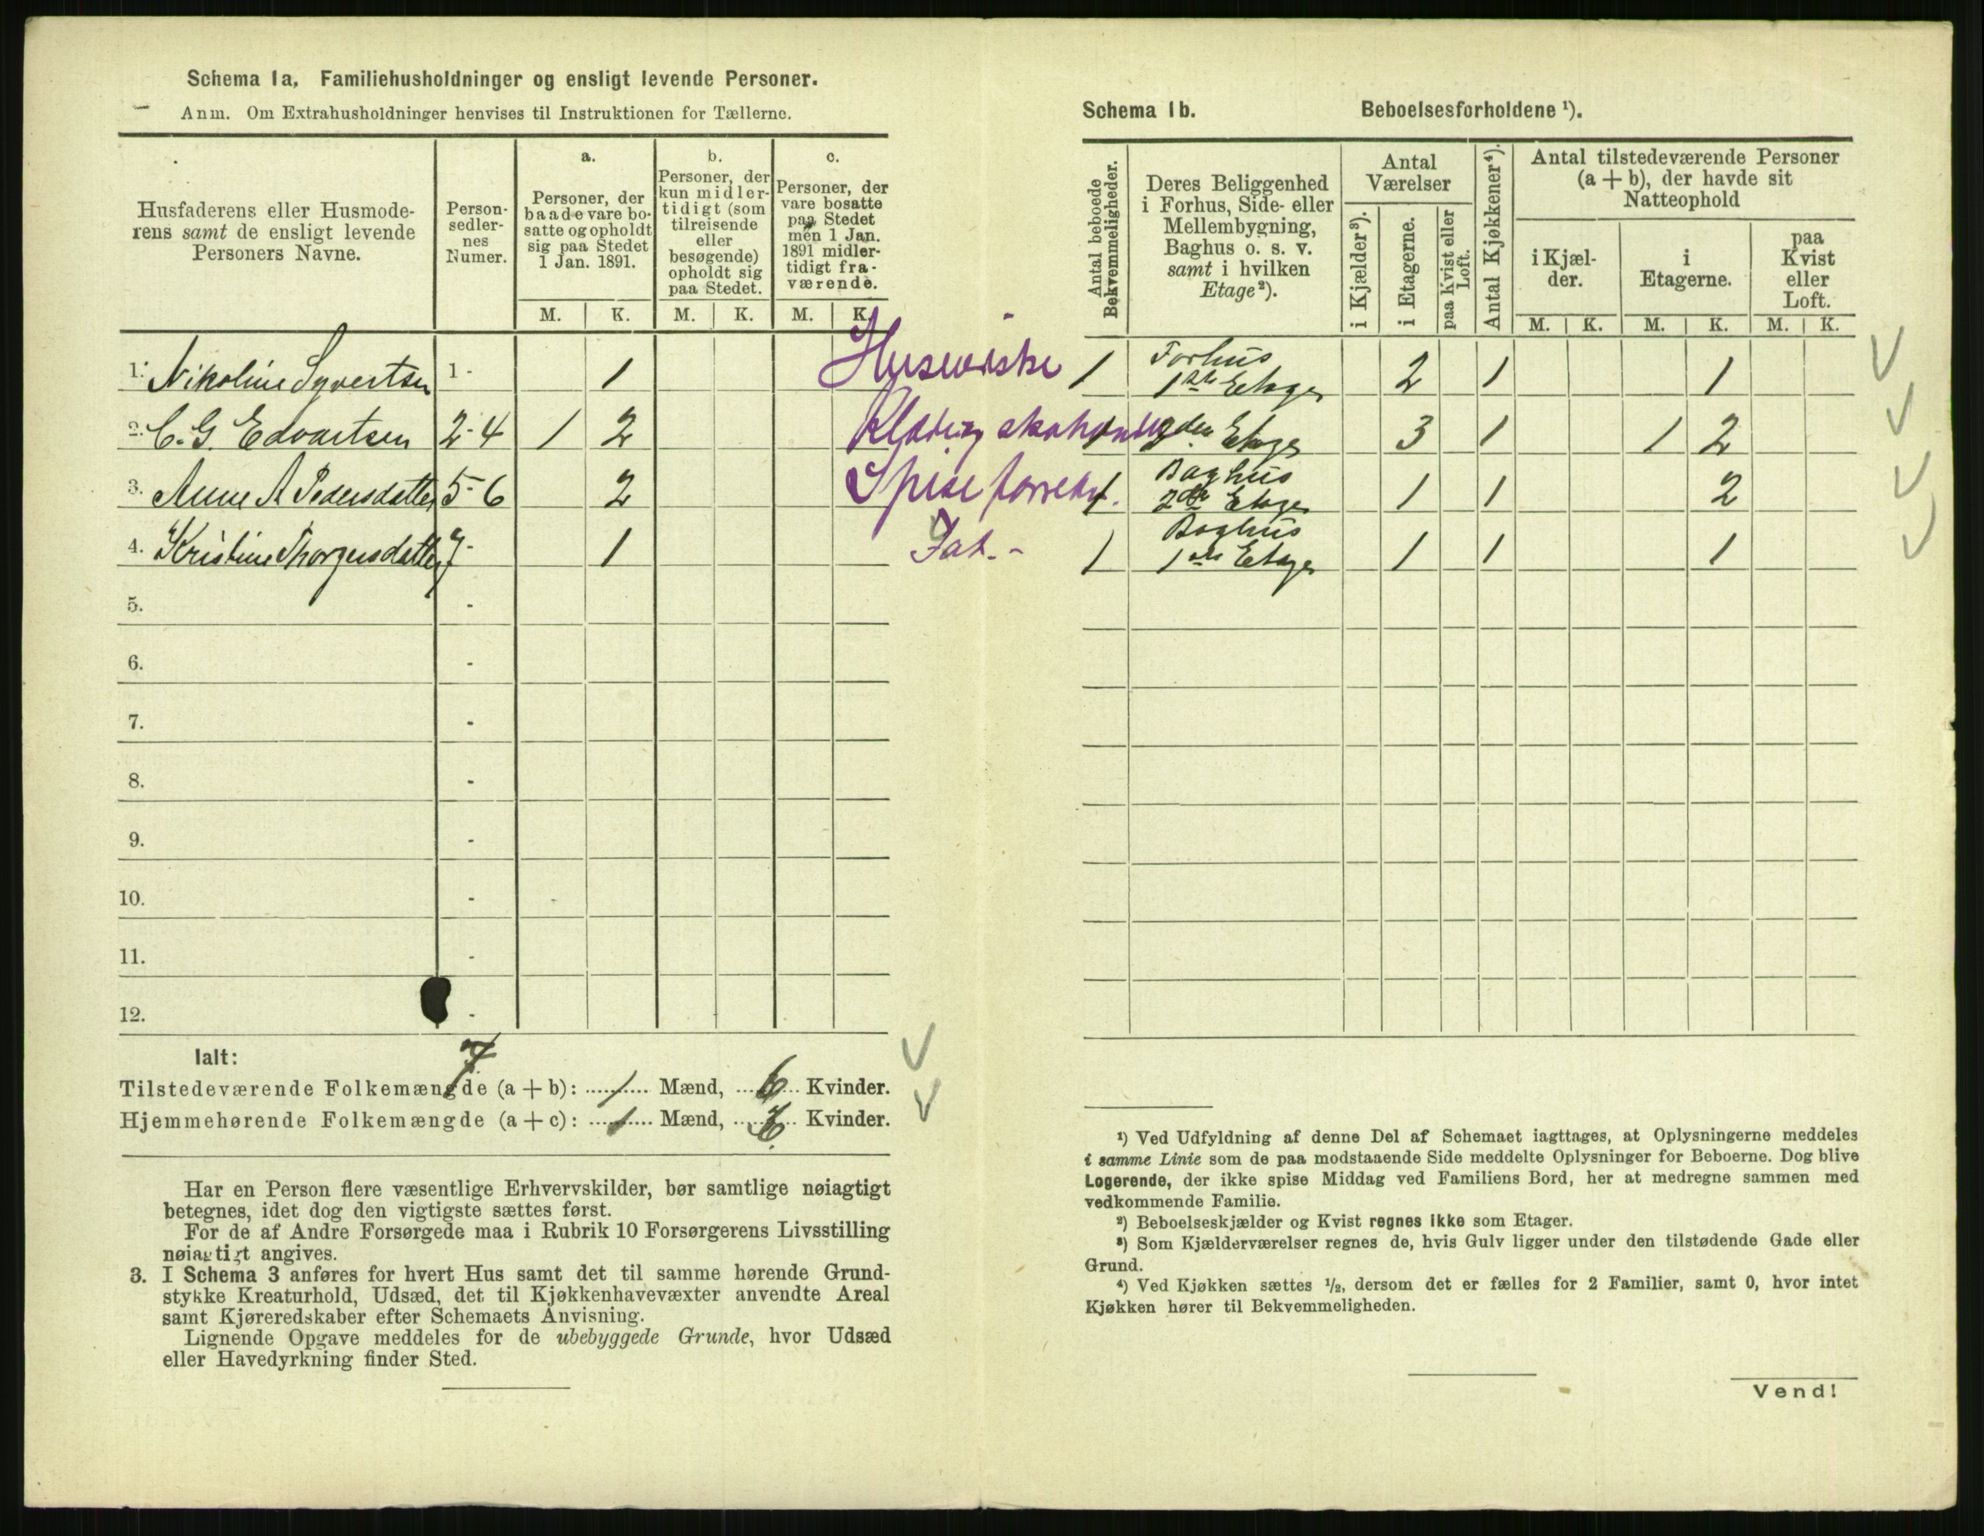 Schema 1a, Familiehusholdninger og ensligt levende Personer.
Anm. Om Extrahusholdninger henvises til Instruktionen for Tællerne.
Husfaderens eller Husmode-
rens samt de ensligt levende
Personers Navne.
Person-
sedler-
nes
Numer.
a.
Personer, der
baade vare bo-
satte og opholdt
sig paa Stedet
1 Jan. 1891.
b.
Personer, der
kun midler-
tidigt (som
tilreisende
eller
besøgende)
opholdt sig
paa Stedet.
c.
Personer, der
vare bosatte
paa Stedet
men 1 Jan.
1891 midler-
tidigt fra-
værende.
M. K. M. K. M. K.
1. Nikoline Syvertsen 1 - 1
2. C. G. Edvartsen 2 - 4 1 2
3. Anne A Pedersdatter 5 - 6 2
4. Kristine Thorgersdatter 7 - 1
5. -
6. -
7. -
8. -
9. -
10. -
11. -
12. -
Ialt: 7
Tilstedeværende Folkemængde (a + b): 1 Mænd, 6 Kvinder.
Hjemmehørende Folkemængde (a + c): 1 Mænd, 6 Kvinder.
Har en Person flere væsentlige Erhvervskilder, bør samtlige nøiagtigt
betegnes, idet dog den vigtigste sættes først.
For de af Andre Forsørgede maa i Rubrik 10 Forsørgerens Livsstilling
nøiagtigt angives.
3. I Schema 3 anføres for hvert Hus samt det til samme hørende Grund-
stykke Kreaturhold, Udsæd, det til Kjøkkenhavevæxter anvendte Areal
samt Kjøreredskaber efter Schemaets Anvisning.
Lignende Opgave meddeles for de ubebyggede Grunde, hvor Udsæd
eller Havedyrkning finder Sted.
Schema 1b. Beboelsesforholdene ¹).
Antal beboede
Bekvemmeligheder.
Deres Beliggenhed
i Forhus, Side- eller
Mellembygning,
Baghus o. s. v.
samt i hvilken
Etage²).
Antal
Værelser
i Kjælder³).
i Etagerne.
paa Kvist eller
Loft.
Antal Kjøkkener⁴).
Antal tilstedeværende Personer
(a + b), der havde sit
Natteophold
i Kjæl-
der.
i
Etagerne.
paa
Kvist
eller
Loft.
M. K. M. K. M. K.
1 Forhus
1ste Etage 2 1 1
1 2den Etage 3 1 1 2
1 Baghus
2den Etage 1 1 2
1 Baghus
1ste Etage 1 1 1
¹) Ved Udfyldning af denne Del af Schemaet iagttages, at Oplysningerne meddeles
i samme Linie som de paa modstaaende Side meddelte Oplysninger for Beboerne. Dog blive
Logerende, der ikke spise Middag ved Familiens Bord, her at medregne sammen med
vedkommende Familie.
²) Beboelseskjælder og Kvist regnes ikke som Etager.
³) Som Kjælderværelser regnes de, hvis Gulv ligger under den tilstødende Gade eller
Grund.
⁴) Ved Kjøkken sættes ½, dersom det er fælles for 2 Familier, samt 0, hvor intet
Kjøkken hører til Bekvemmeligheden.
Vend!